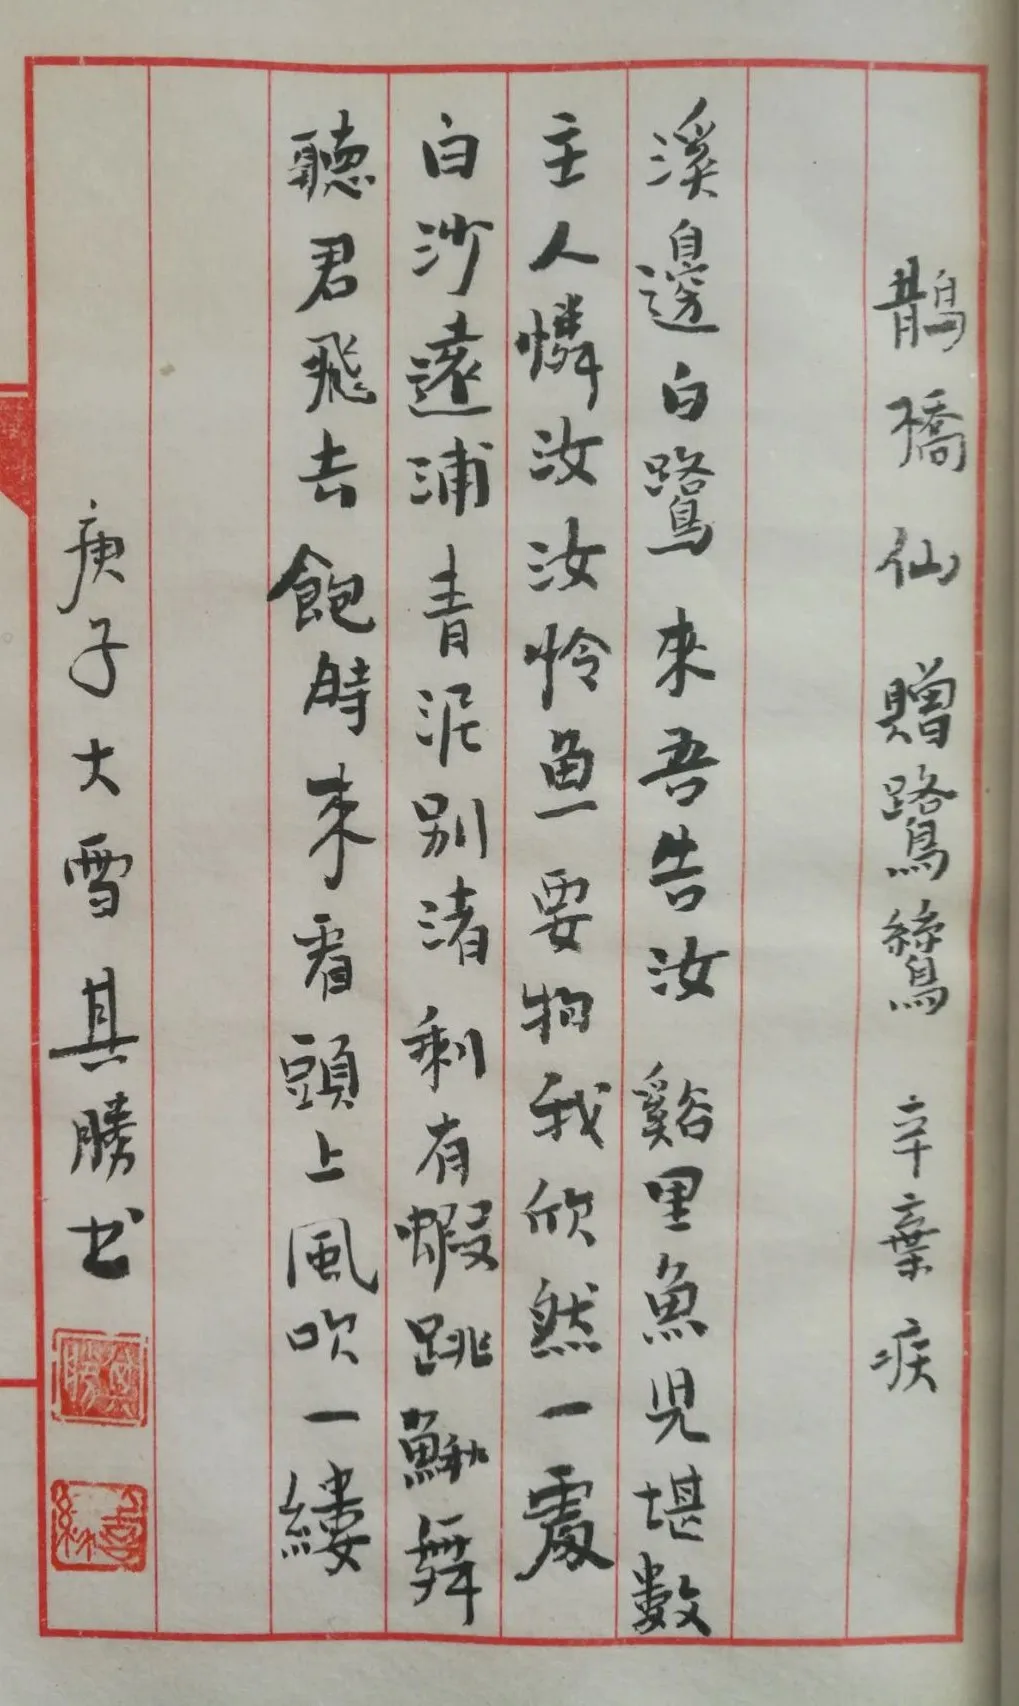 鵲橋仙 贈鷺鷥 辛棄疾
溪邊白鷺來吾告汝 谿里魚児堪数
主人憐汝汝怜魚要物我欣然一處
白沙遠浦青泥别渚 剩有蝦跳鰍舞
聽君飛去飽時來看頭上風吹一縷
庚子大雪其勝书